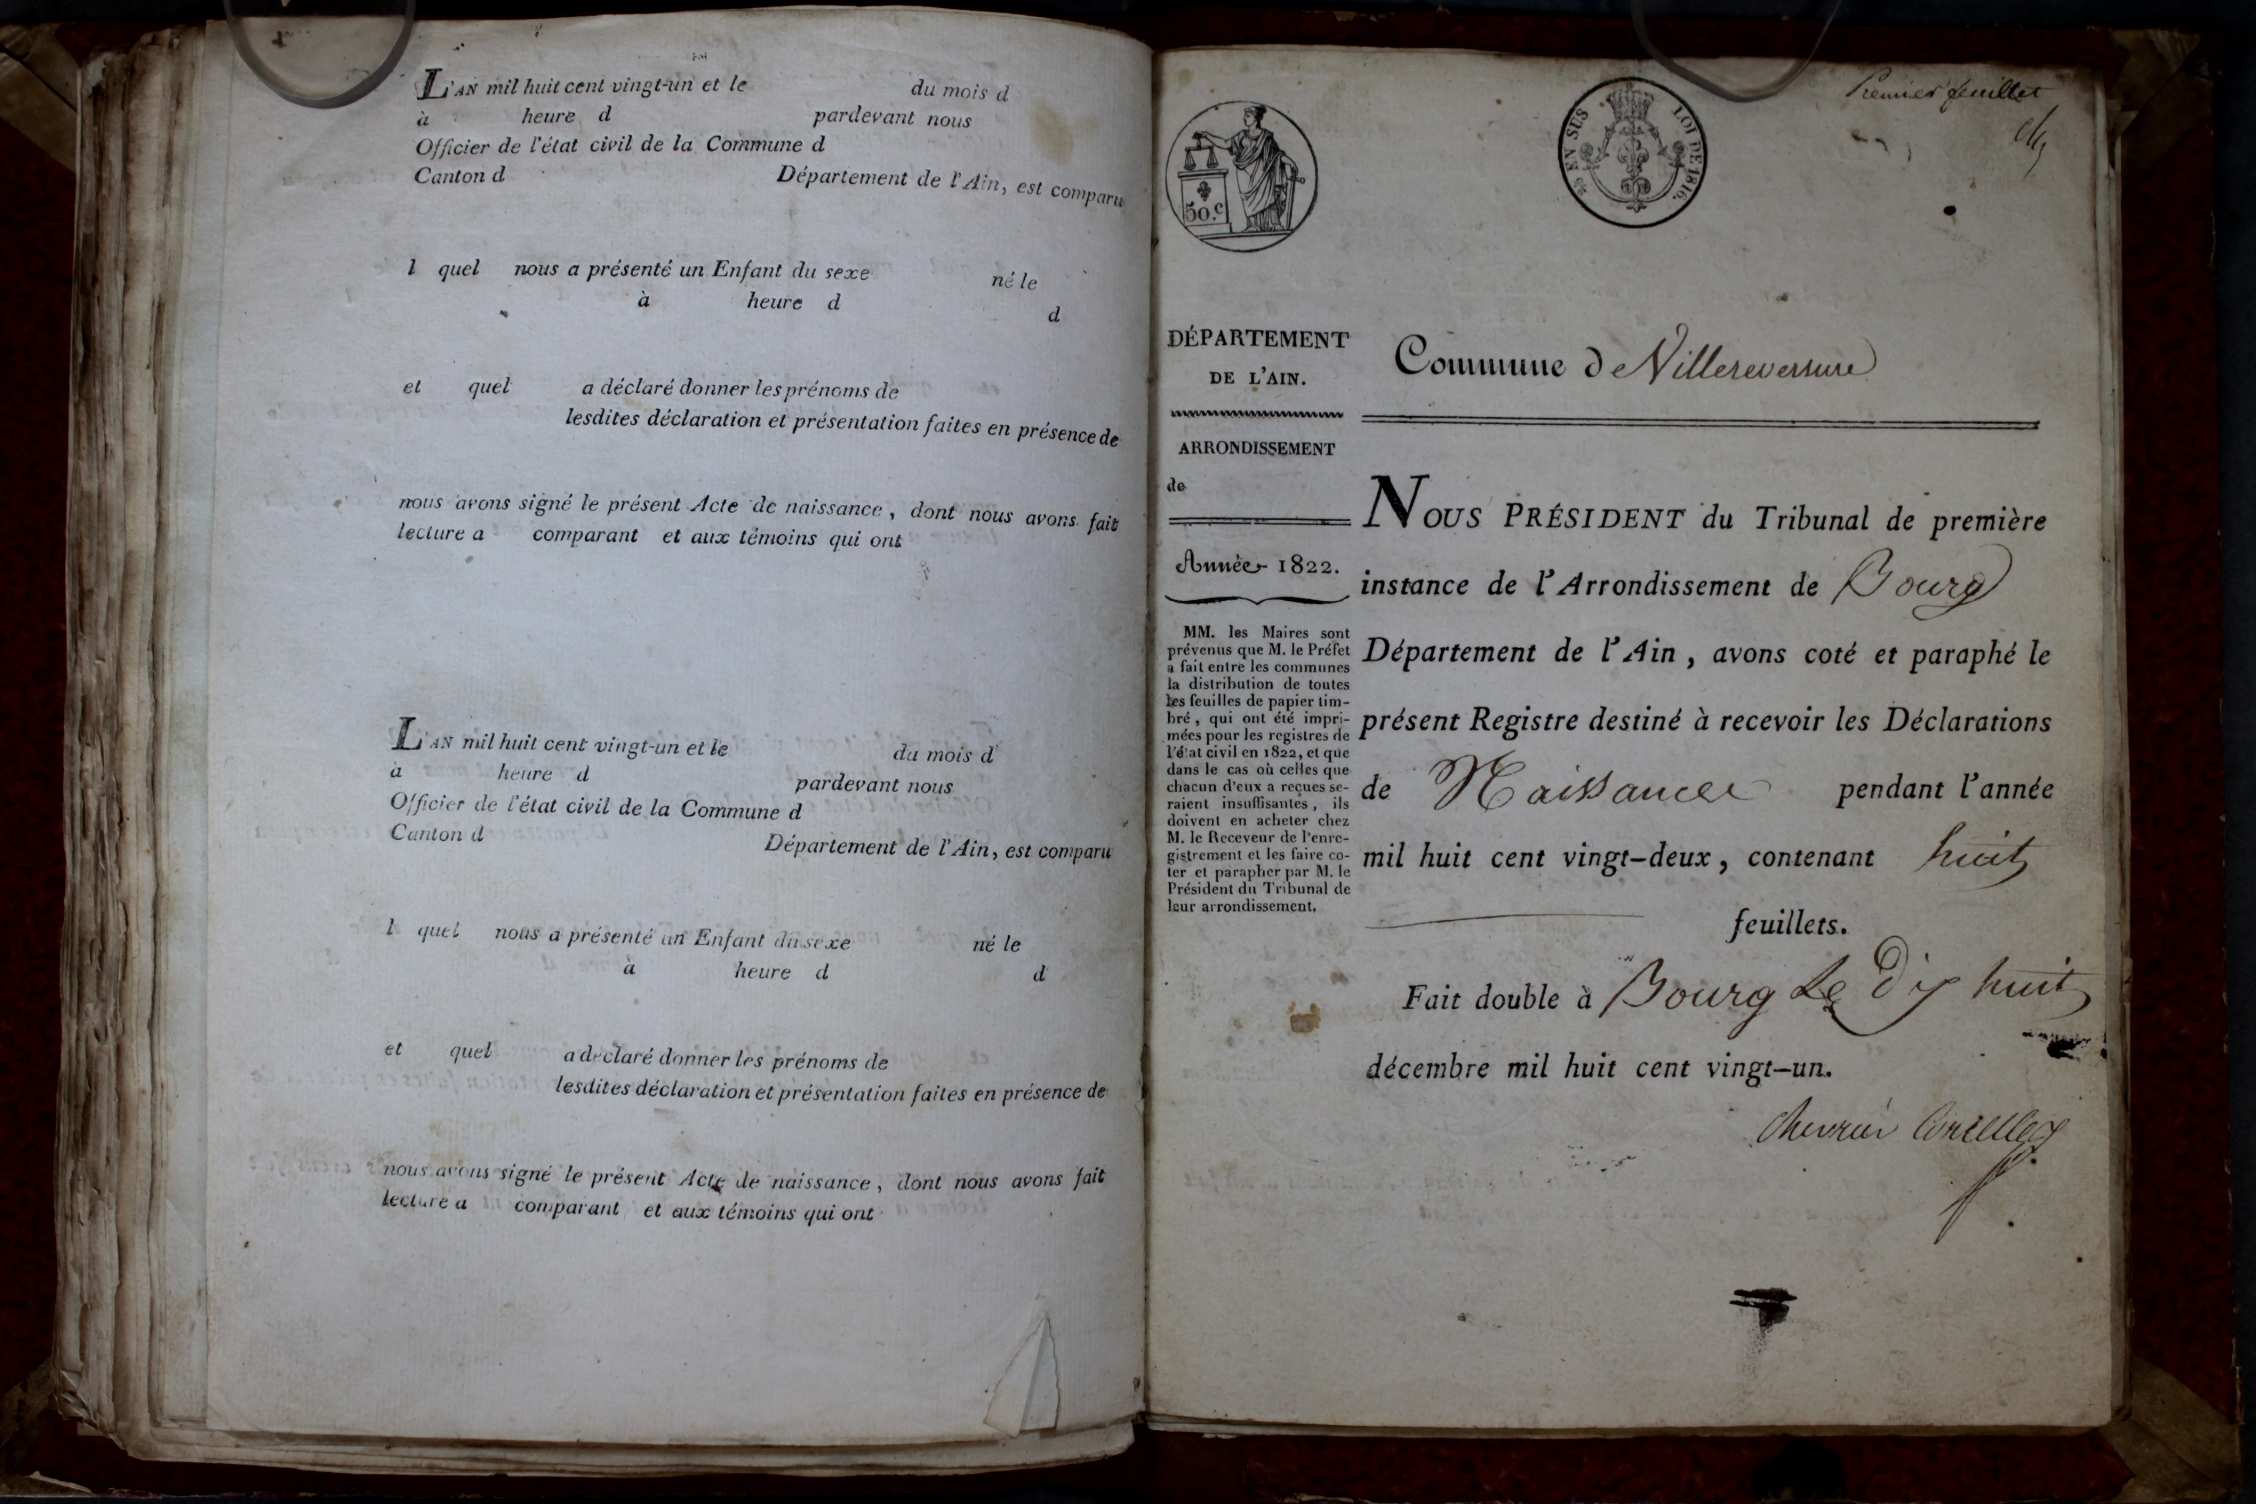 L'AN mil huit cent vingt-un et le du mois d
à heure d pardevant nous
Officier de l'état civil de la Commune d
Canton d Département de l'Ain, est comparu
l quel nous a présenté un Enfant du sexe né le
à heure d d
et quel a déclaré donner les prénoms de
lesdites déclaration et présentation faites en présence de
nous avons signé le présent Acte de naissance, dont nous avons fait
lecture a comparant et aux témoins qui ont
L'AN mil huit cent vingt-un et le du mois d
à heure d pardevant nous
Officier de l'état civil de la Commune d
Canton d Département de l'Ain, est comparu
l quel nous a présenté un Enfant du sexe né le
à heure d d
et quel a déclaré donner les prénoms de
lesdites déclaration et présentation faites en présence de
nous avons signé le présent Acte de naissance, dont nous avons fait
lecture a comparant et aux témoins qui ont
Premier feuillet
50.c
EN SUS LOI DE 1816.
DÉPARTEMENT
DE L'AIN.
ARRONDISSEMENT
de
Année 1822.
MM. les Maires sont
prévenus que M. le Préfet
a fait entre les communes
la distribution de toutes
les feuilles de papier tim-
bré, qui ont été impri-
mées pour les registres de
l'état civil en 1822, et que
dans le cas où celles que
chacun d'eux a reçues se-
raient insuffisantes, ils
doivent en acheter chez
M. le Receveur de l'enre-
gistrement et les faire co-
ter et parapher par M. le
Président du Tribunal de
leur arrondissement.
Commune de Villereversure
NOUS PRÉSIDENT du Tribunal de première
instance de l'Arrondissement de Bourg
Département de l'Ain, avons coté et paraphé le
présent Registre destiné à recevoir les Déclarations
de Naissance pendant l'année
mil huit cent vingt-deux, contenant huit
feuillets.
Fait double à Bourg Le Dix huit
décembre mil huit cent vingt-un.